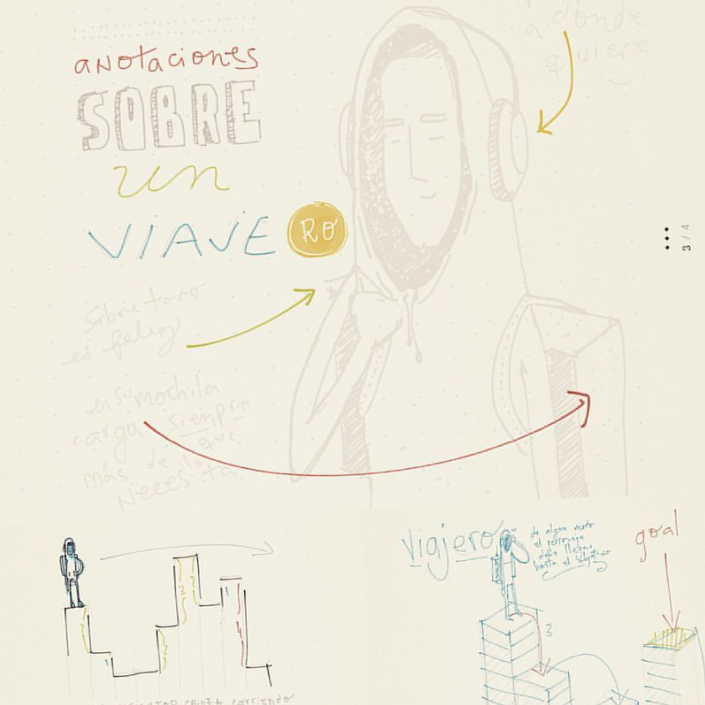 anotaciones
SOBRE
un
VIAJERO
a donde
quiere
Sobre todo
es feliz
en su mochila
carga siempre
más de lo que
necesita
3 / 4
Viajero
de algun modo
el personaje
debe llegar
hasta el
goal
3
corriendo